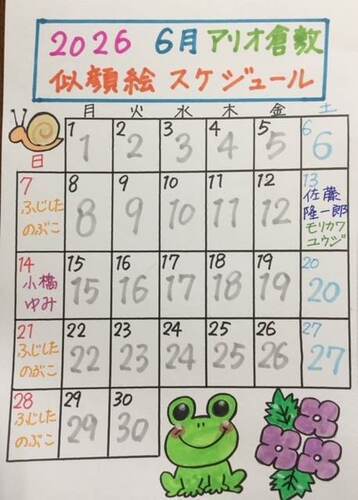 2026 6月 アリオ倉敷
似顔絵 スケジュール
月 火 水 木 金 土
日
1 2 3 4 5 6
1 2 3 4 5 6
7 8 9 10 11 12 13
ふじした のぶこ 8 9 10 11 12 佐藤 隆一郎 モリカワ ユウジ
14 15 16 17 18 19 20
小橋 ゆみ 15 16 17 18 19 20
21 22 23 24 25 26 27
ふじした のぶこ 22 23 24 25 26 27
28 29 30
ふじした のぶこ 29 30